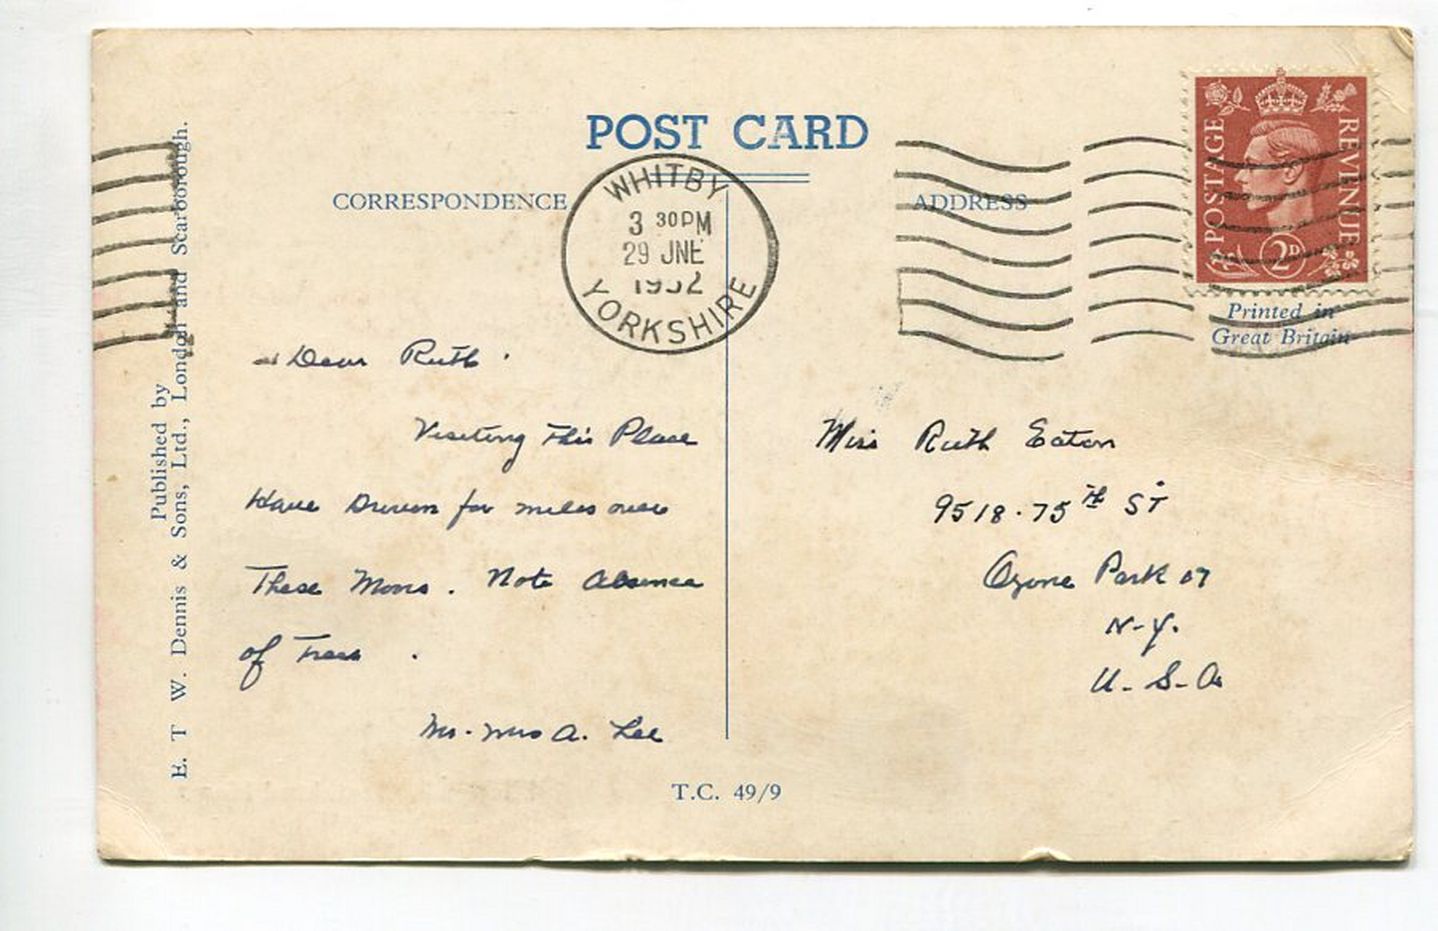 POST CARD
CORRESPONDENCE
ADDRESS
WHITBY
3 30PM
29 JNE
1952
YORKSHIRE
POSTAGE
REVENUE
2D
Printed in
Great Britain
Published by
E. T. W. Dennis & Sons, Ltd., London and Scarborough.
Dear Ruth.
Visiting This Place
Have Driven for miles over
These Moors. Note Absence
of Trees.
Mr. Mrs A. Lee
Miss Ruth Eaton
9518.75th ST
Ozone Park 17
N-Y.
U-S-A
T.C. 49/9